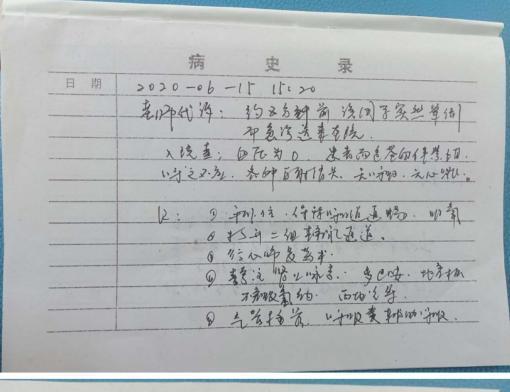 病史录
日期
2020-06-15 15:20
老师代诉：约五分钟前该同学突然晕倒
即急诊送来医院。
入院查：血压为0，患者面色苍白伴紫绀
呼之不应，各种反射消失，无呼吸，无心跳。
R： ① 平卧位，保持呼吸道通畅，吸氧
② 打开二组静脉通道。
③ 给心肺复苏术
④ 静注肾上腺素、多巴胺、地塞米松
碳酸氢钠、西地兰等
⑤ 气管插管，呼吸囊辅助呼吸。